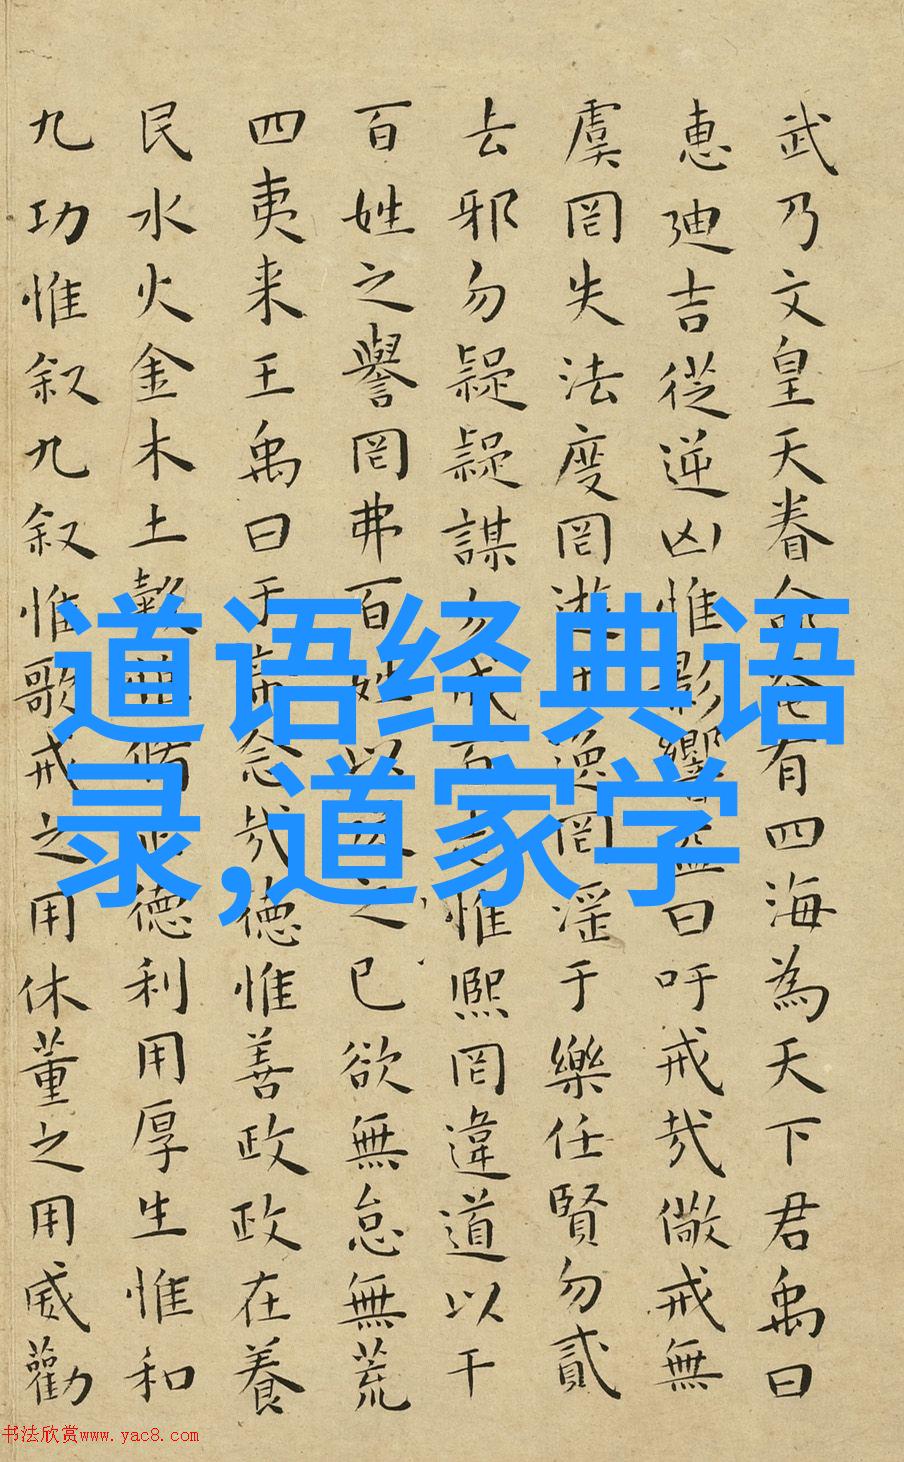 武乃文皇天眷命奄有四海為天下君禹曰
惠迪吉從逆凶惟影響益曰吁戒哉儆戒無
虞罔失法度罔遊于逸罔淫于樂任賢勿貳
去邪勿疑疑謀勿成百志惟熙罔違道以干
百姓之譽罔弗百姓以從之己欲無怠無荒
四夷来王禹曰於帝念哉德惟善政政在養
民水火金木土穀惟脩正德利用厚生惟和
九功惟叙九叙惟歌戒之用休董之用威勸
道语经典语
录,道家学
书法欣赏www.yac8.com